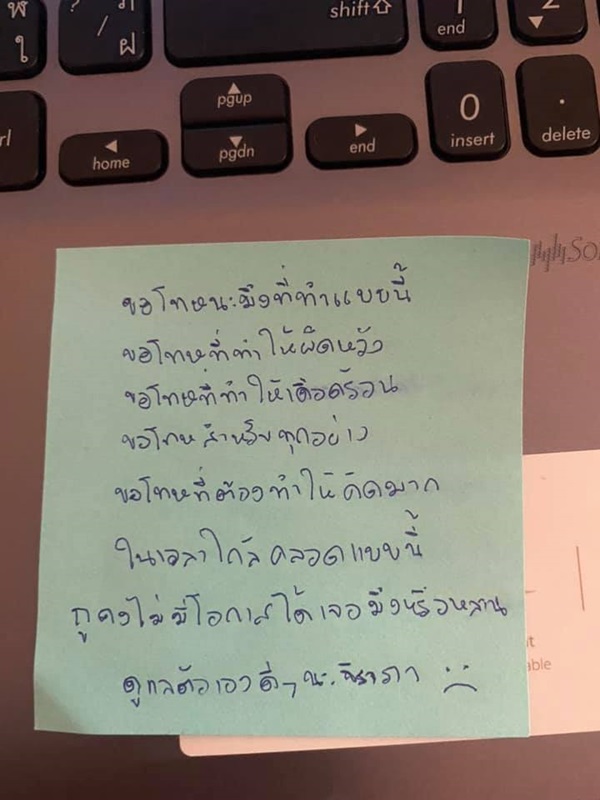 พ
ใ
?
ภ
/
ฝ
shift
1
end
2
rl
home
pgup
pgdn
end
0
insert
.
delete
ขอโทษนะมึงที่ทำแบบนี้
ขอโทษที่ทำให้ผิดหวัง
ขอโทษที่ทำให้เดือดร้อน
ขอโทษสำหรับทุกอย่าง
ขอโทษที่ต้องทำให้คิดมาก
ในเวลาใกล้คลอดแบบนี้
กูคงไม่มีโอกาสได้เจอมึงหรือหลาน
ดูแลตัวเองดีๆนะ